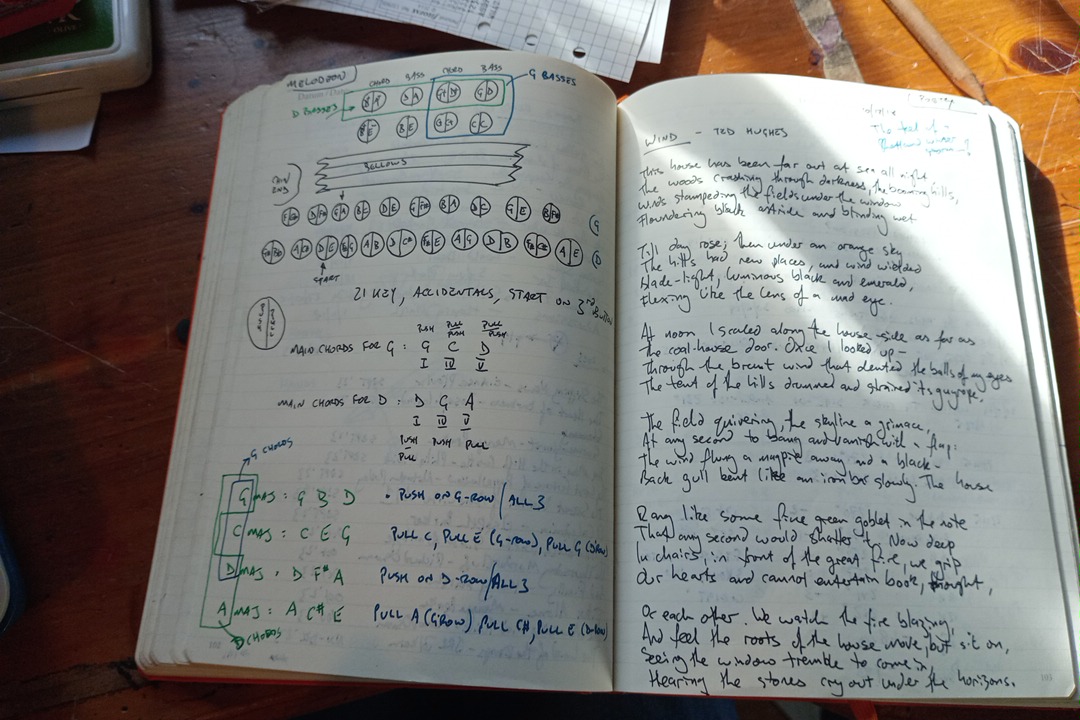 MELODEON
CHORD BASS CHORD BASS
G BASSES
D BASSES
B E
G G
C C
BELLOWS
G A
B C
D E
B A
D C
G E
D E
B G
A B
D C#
F# E
A G
D B
A E
START
21 KEY, ACCIDENTALS, START ON 3RD BUTTON
PUSH PULL PUSH PULL PUSH
MAIN CHORDS FOR G : G C D
I IV V
MAIN CHORDS FOR D : D G A
I IV V
PUSH PULL PUSH PULL
G CHORDS
G MAJ : G B D • PUSH ON G-ROW/ALL 3
C MAJ : C E G PULL C, PULL E (G-ROW), PULL G (D-ROW)
D MAJ . D F# A PUSH ON D-ROW/ALL 3
A MAJ : A C# E PULL A (G-ROW) PULL C#, PULL E (D-ROW)
D CHORDS
POETRY
WIND – TED HUGHES
This house has been far out at sea all night
The woods crashing through darkness, the booming hills,
Winds stampeding the fields under the window
Floundering black astride and blinding wet
Till day rose; then under an orange sky
The hills had new places, and wind wielded
Blade-light, luminous black and emerald,
Flexing like the lens of a mad eye.
At noon I scaled along the house-side as far as
The coal-house door. Once I looked up –
Through the brunt wind that dented the balls of my eyes
The tent of the hills drummed and strained its guyrope.
The field quivering, the skyline a grimace,
At any second to bang and vanish with a flap:
The wind flung a magpie away and a black-
Back gull bent like an iron bar slowly. The house
Rang like some fine green goblet in the note
That any second would shatter it. Now deep
In chairs, in front of the great fire, we grip
Our hearts and cannot entertain book, thought,
Or each other. We watch the fire blazing,
And feel the roots of the house move, but sit on,
Seeing the window tremble to come in,
Hearing the stones cry out under the horizons.
103